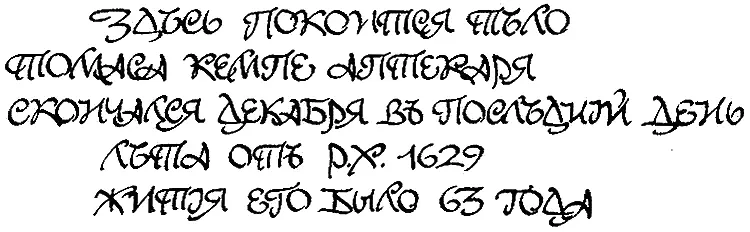 Здѣсь покоится тѣло
Томаса Кемпе аптекаря
скончался декабря въ послѣдній день
лѣта отъ р.х. 1629
житія его было 63 года